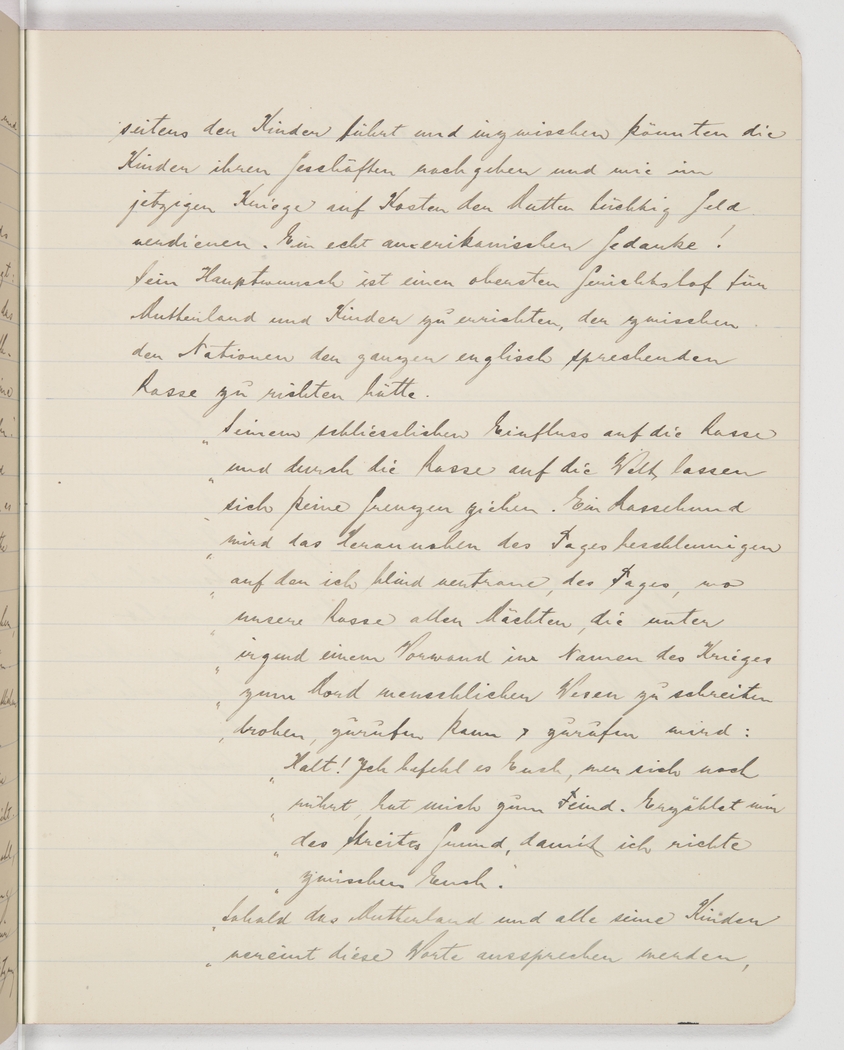 seitens der Kinder führt und inzwischen könnten die
Kinder ihren Geschäften nachgehen und wie im
jetzigen Kriege auf Kosten der Mutter tüchtig Geld
verdienen. Ein echt amerikanischer Gedanke!
Sein Hauptwunsch ist einen obersten Gerichtshof für
Mutterland und Kinder zu errichten, der zwischen
den Nationen der ganzen englisch sprechenden
Rasse zu richten hätte.
"Seinem schliesslichen Einfluss auf die Rasse
"und durch die Rasse auf die Welt, lassen
sich keine Grenzen ziehen. Ein Rassebund
"wird das Herannahen des Tages beschleunigen
"auf den ich blind vertraue, des Tages, wo
"unsere Rasse allen Mächten, die unter
"irgend einem Vorwand im Namen des Krieges
"zum Mord menschlicher Wesen zu schreiten
"drohen, zurufen kann & zurufen wird:
"Halt! Ich befehl es Euch, wer sich noch
"rührt, hat mich zum Feind. Erzählet mir
"des Streites Grund, damit ich richte
"zwischen Euch!
"Sobald das Mutterland und alle seine Kinder
"vereint diese Worte aussprechen werden,